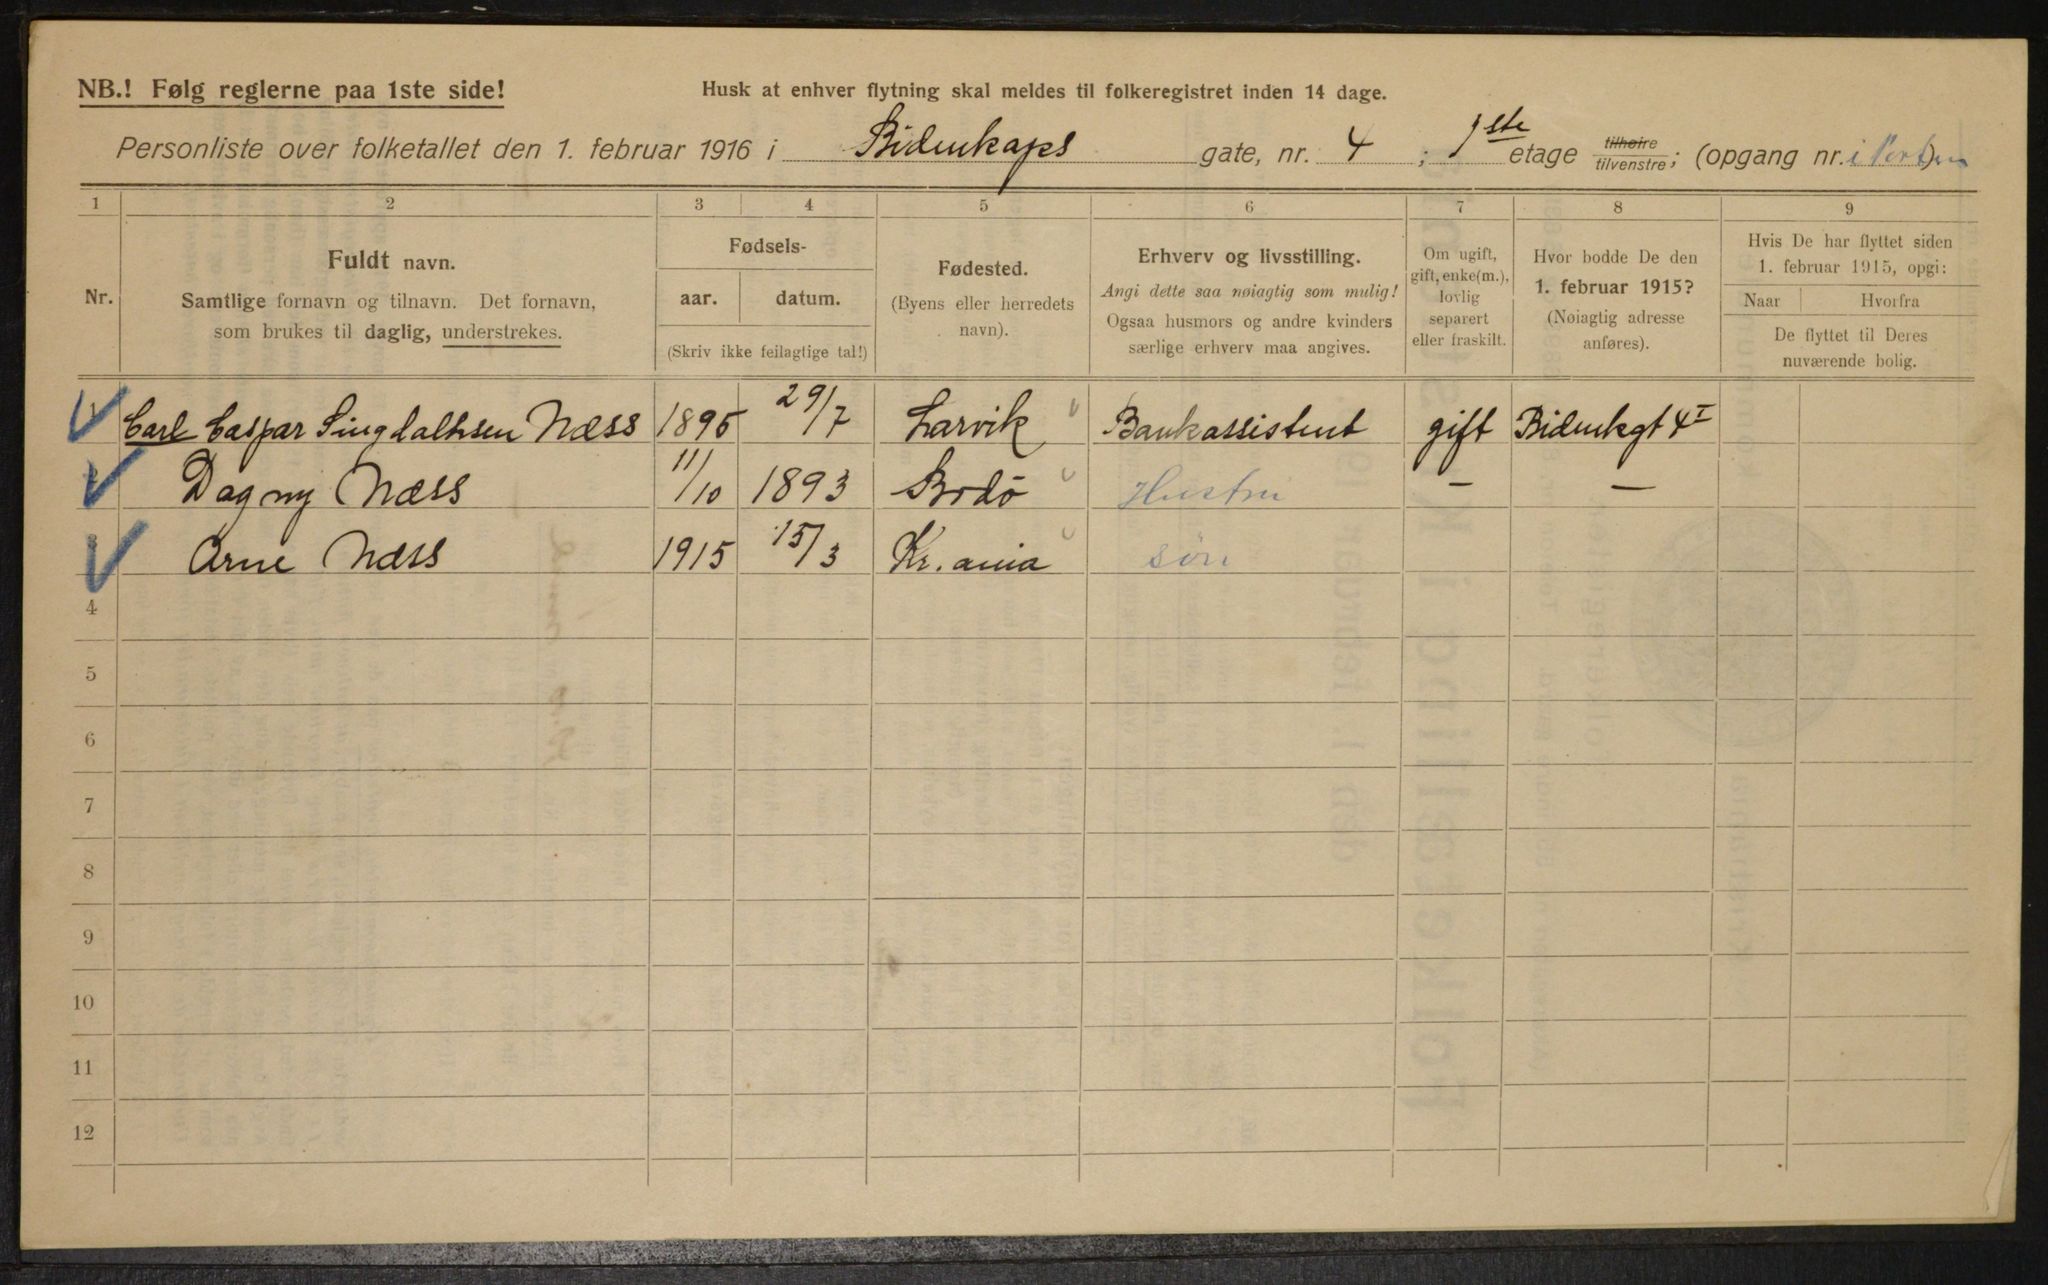 NB.! Følg reglerne paa 1ste side!
Husk at enhver flytning skal meldes til folkeregistret inden 14 dage.
Personliste over folketallet den 1. februar 1916 i Bidenkaps gate, nr. 4 ; 1ste etage tilhøire tilvenstre; (opgang nr. i Porten)
1 2 3 4 5 6 7 8 9
Nr.
Fuldt navn.
Samtlige fornavn og tilnavn. Det fornavn,
som brukes til daglig, understrekes.
Fødsels-
aar. datum.
(Skriv ikke feilagtige tal!)
Fødested.
(Byens eller herredets
navn).
Erhverv og livsstilling.
Angi dette saa nøiagtig som mulig!
Ogsaa husmors og andre kvinders
særlige erhverv maa angives.
Om ugift,
gift, enke(m.),
lovlig
separert
eller fraskilt.
Hvor bodde De den
1. februar 1915?
(Nøiagtig adresse
anføres).
Hvis De har flyttet siden
1. februar 1915, opgi:
Naar Hvorfra
De flyttet til Deres
nuværende bolig.
1 Carl Caspar Næss 29/7 Larvik Bankassistent gift Bidenkgt 4 I
2 Dagny Næss 11/10 1893 Bodö Hustru — —
3 Arne Næss 1915 15/3 Kr.ania søn
4
5
6
7
8
9
10
11
12